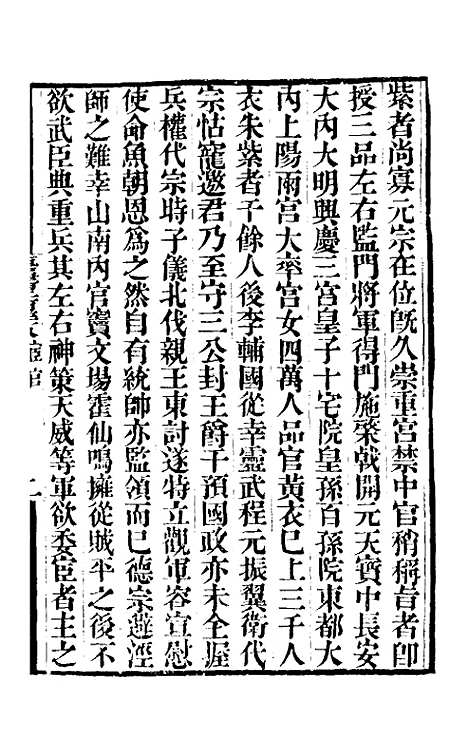 紫者尚寡元宗在位既久崇重宮禁中官稍稱旨者卽
授三品左右監門將軍得門施棨戟開元天寶中長安
大內大明興慶三宮皇子十宅院皇孫百孫院東都大
內上陽兩宮大率宮女四萬人品官黃衣已上三千人
衣朱紫者千餘人後李輔國從幸靈武程元振翼衛代
宗怙寵邀君乃至守三公封王爵干預國政亦未全握
兵權代宗時子儀北伐親王東討遂特立觀軍容宣慰
使命魚朝恩爲之然自有統師亦監領而已德宗避涇
師之難幸山南內官竇文場霍仙鳴擁從賊平之後不
欲武臣典重兵其左右神策天威等軍欲委宦者主之